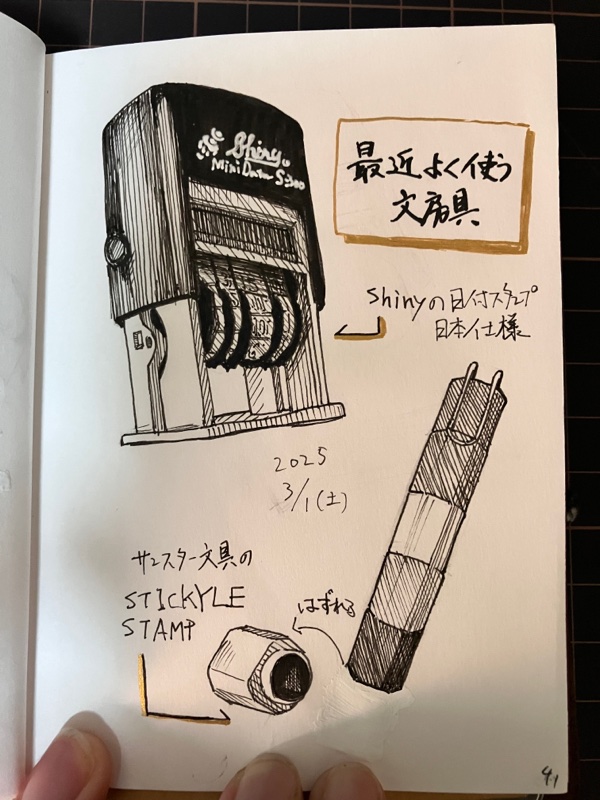 Shiny
Mini Dater S-300
最近よく使う
文房具
shinyの日付スタンプ
日本仕様
2025
3/1(土)
サンスター文具の
STICKYLE
STAMP
はずれる
41